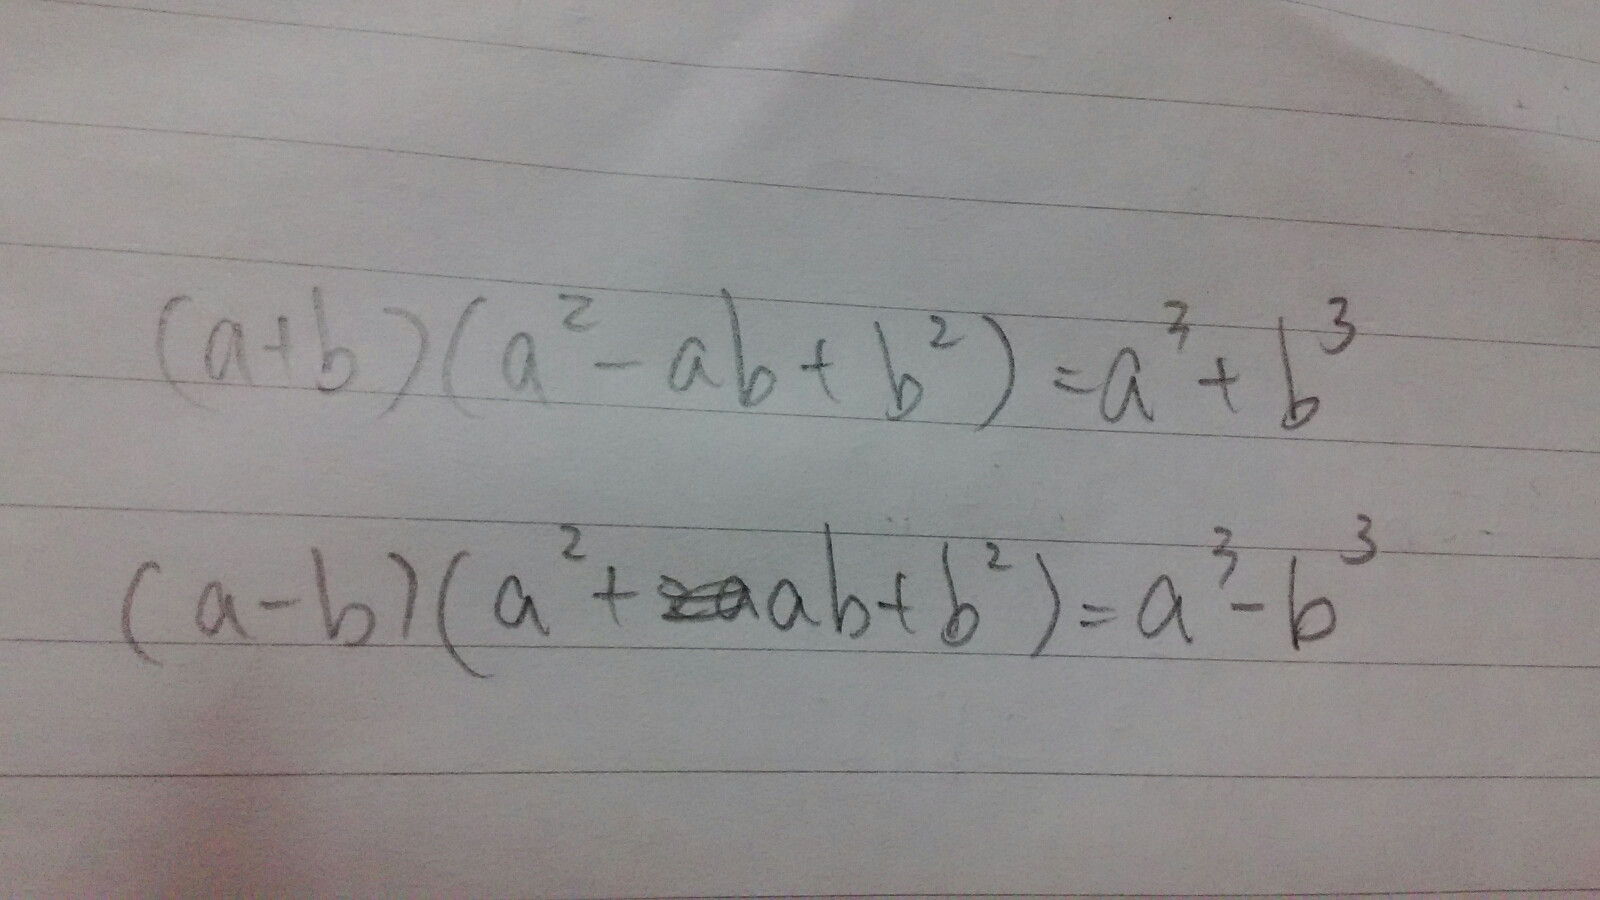 (a+b)(a²-ab+b²)=a³+b³
(a-b)(a²+ab+b²)=a³-b³